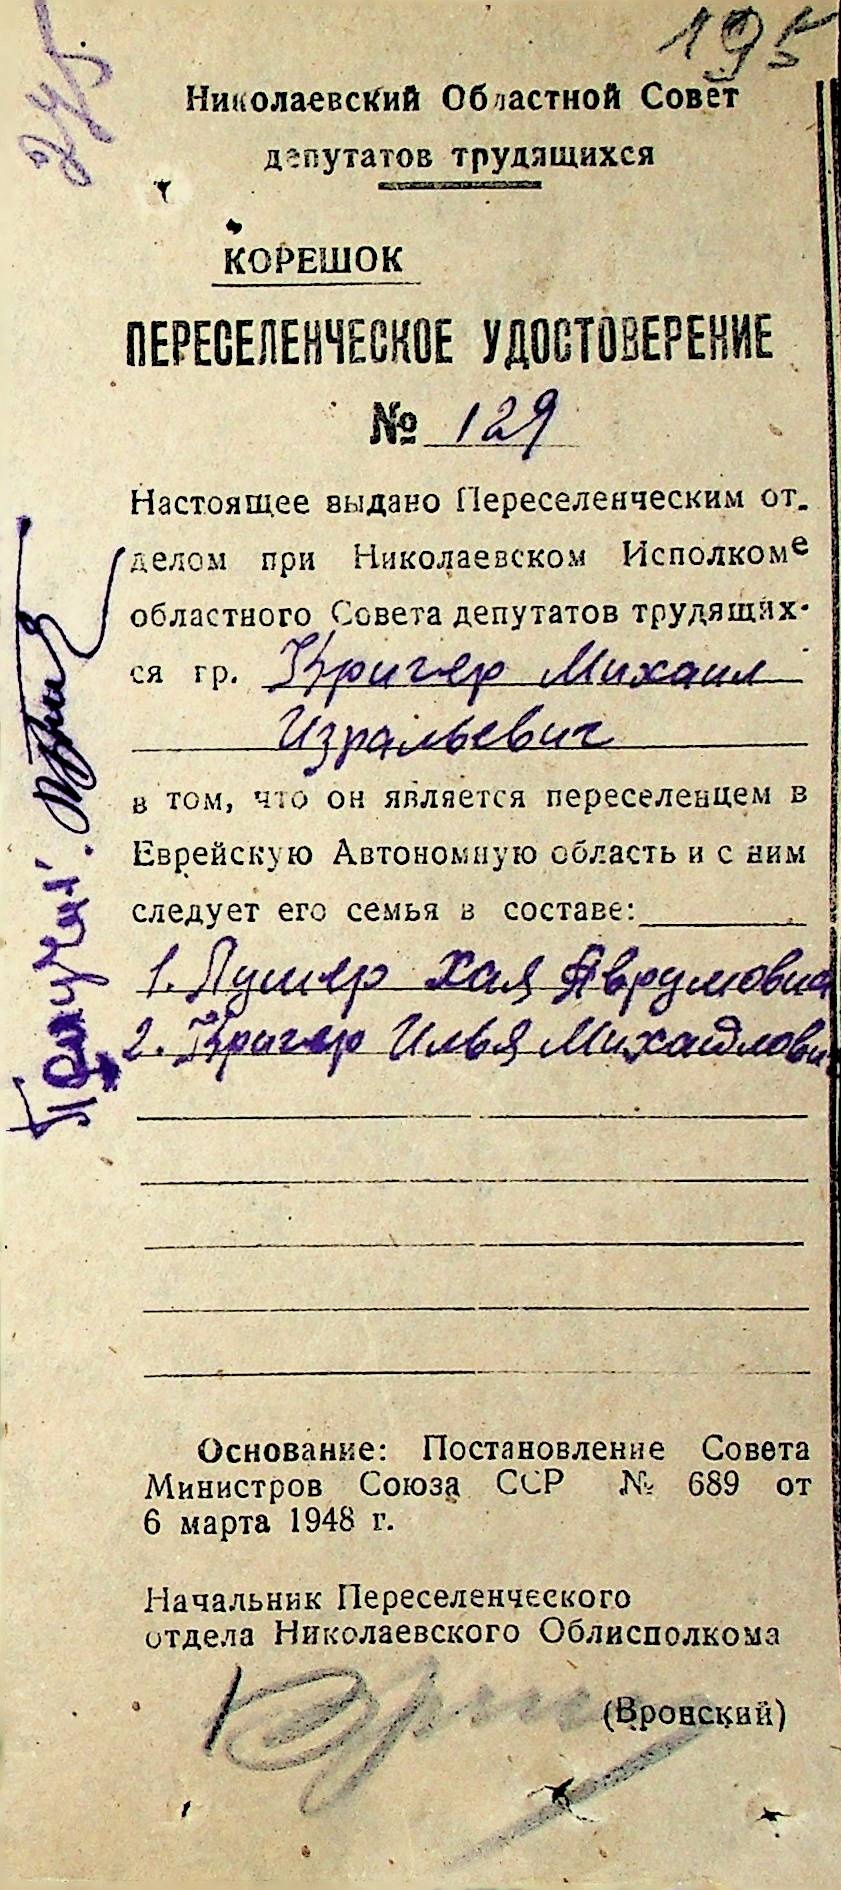 195
245
Николаевский Областной Совет
депутатов трудящихся
КОРЕШОК
ПЕРЕСЕЛЕНЧЕСКОЕ УДОСТОВЕРЕНИЕ
№ 129
Настоящее выдано Переселенческим от-
делом при Николаевском Исполкоме
областного Совета депутатов трудящих-
ся гр. Кригер Михаил
Изральевич
в том, что он является переселенцем в
Еврейскую Автономную область и с ним
следует его семья в составе:
1. Пушер Хая Аврумовна
2. Кригер Илья Михайлович
Основание: Постановление Совета
Министров Союза ССР № 689 от
6 марта 1948 г.
Начальник Переселенческого
отдела Николаевского Облисполкома
(Вронский)